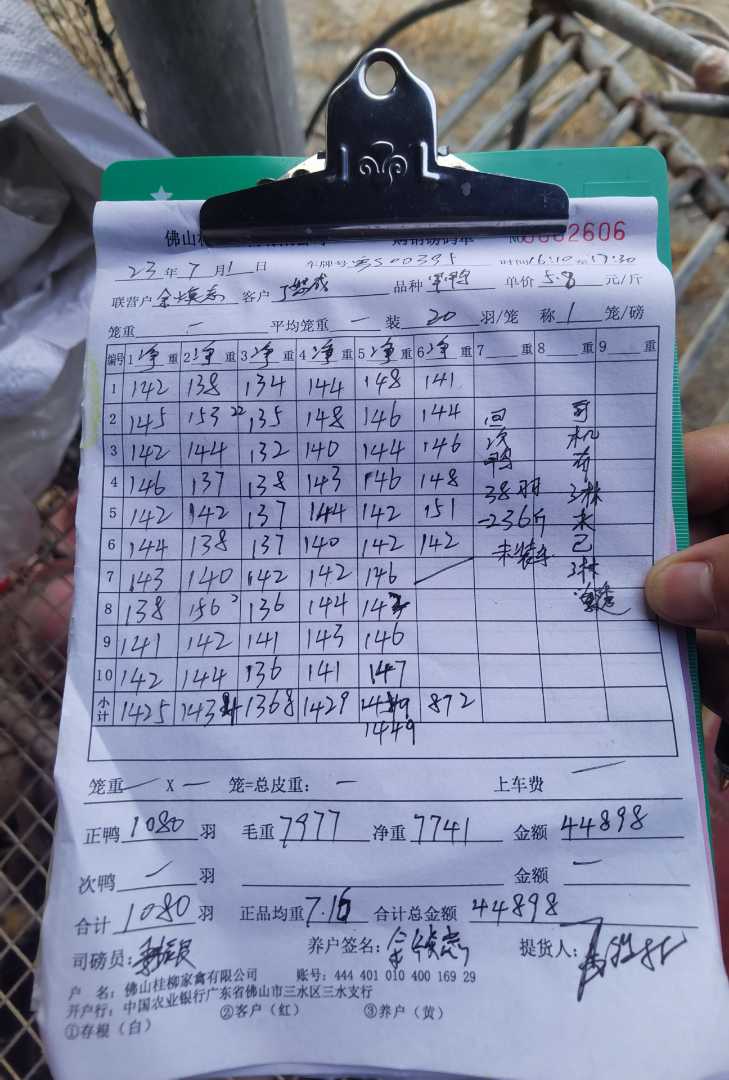 佛山桂 购销磅码单 № 0002606
23年7月1日 车牌号 S00395 时间16:10至17:30
联营户 客户 品种 单价5.8元/斤
笼重 — 平均笼重 — 装 20 羽/笼 称 1 笼/磅
编号 1净重 2净重 3净重 4净重 5净重 6净重 7 重 8 重 9 重
1 142 138 134 144 148 141
2 145 153 22 135 148 146 144 回 司
3 142 144 132 140 144 146 次 机
4 146 137 138 143 146 148 鸭 有
5 142 142 137 144 142 151 38羽 3林
6 144 138 137 140 142 142 -236斤 未
7 143 140 142 142 146 未装车 已
8 138 156 136 144 142 3林
9 141 142 141 143 146
10 142 144 136 141 147
小计 1425 1434 1368 1429 1449 872
1449
笼重 — X — 笼=总皮重: — 上车费 —
正鸭 1080 羽 毛重 7977 净重 7741 金额 44898
次鸭 — 羽 金额 —
合计 1080 羽 正品均重 7.16 合计总金额 44898
司磅员: 养户签名: 提货人:
户 名: 佛山桂柳家禽有限公司 账号: 444 401 010 400 169 29
开户行: 中国农业银行广东省佛山市三水区三水支行
①存根(白) ②客户(红) ③养户(黄)